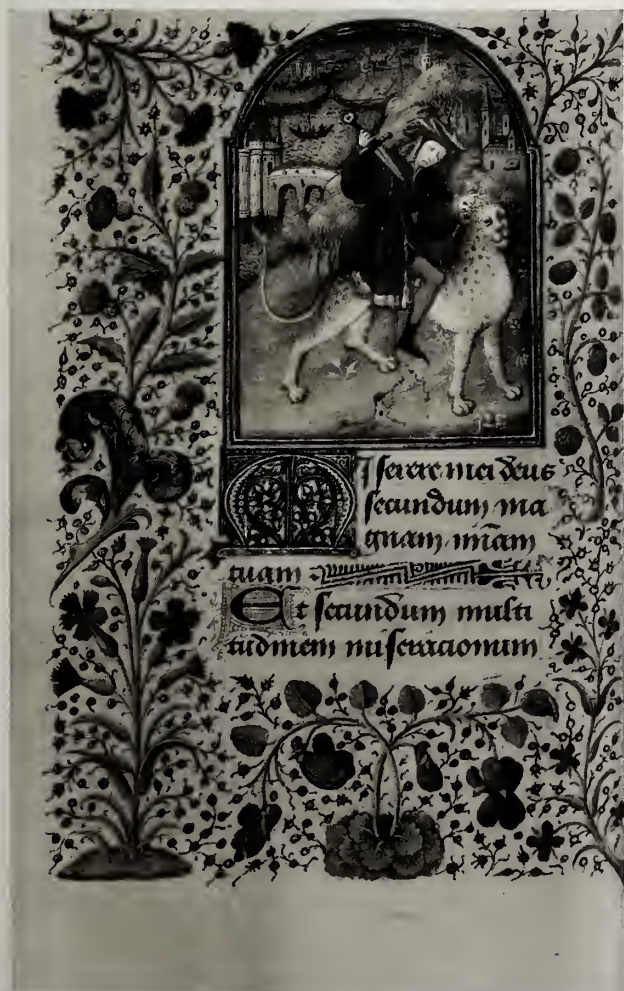 Miserere mei deus
secundum ma
gnam mīam
tuam
Et secundum multi
tudinem miseracionum